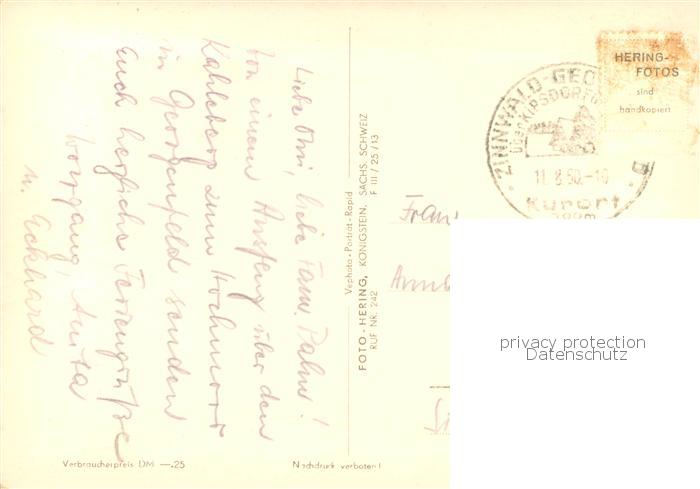 Liebe Omi, liebe Fam. Palm!
Von einem Ausflug über den
Kahleberg zum Hochmoor
in Georgenfeld senden
Euch herzliche Feriengrüße
Wolfgang, Anita
u. Eckhard
Verbraucherpreis DM —.25
Nachdruck verboten!
Vephota-Porträt-Rapid
FOTO-HERING, KÖNIGSTEIN, SÄCHS. SCHWEIZ
RUF NR. 242 F III / 25 / 13
HERING-
FOTOS
sind
handkopiert
ZINNWALD-GEO
über KIPSDORF
11.8.60.-10
Kurort
Frau
privacy protection
Datenschutz